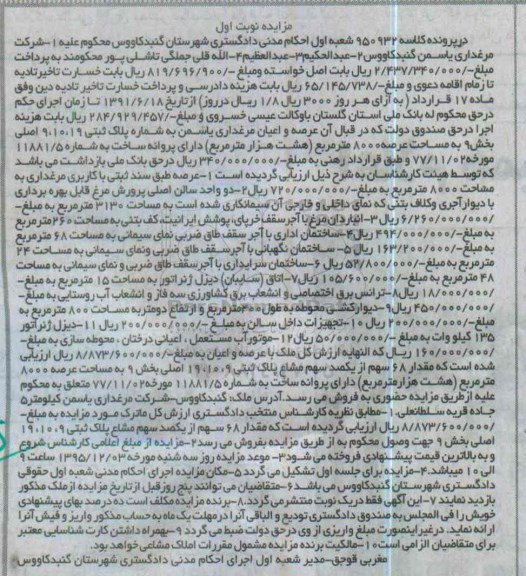 مزایده نوبت اول
در پرونده کلاسه ۹۵۰۹۳۲ شعبه اول احکام مدنی دادگستری شهرستان گنبدکاووس محکوم علیه ۱-شرکت
مرغداری یاسمن گنبدکاووس۲-عبدالحکیم۳-عبدالعظیم۴-الله قلی جملگی تاشلی پور محکومند به پرداخت
مبلغ-/۲/۴۳۷/۳۴۰/۰۰۰ ریال بابت اصل خواسته ومبلغ -/۸۱۹/۶۹۶/۹۰۰ ریال بابت خسارت تاخیر تادیه
تا زمام اقامه دعوی و مبلغ-/۶۵/۱۴۵/۷۳۸ ریال بابت هزینه دادرسی و پرداخت خسارت تاخیر تادیه دین وفق
ماده ۱۷ قرارداد ( به ازای هر روز ۳۰۰۰ ریال ۱/۸ ریال درروز) ازتاریخ ۱۳۹۱/۶/۱۸ تا زمان اجرای حکم
درحق محکوم له بانک ملی استان گلستان باوکالت عیسی خسروی و مبلغ-/۲۸۴/۹۲۹/۴۵۷ ریال بابت هزینه
اجرا درحق صندوق دولت که در قبال آن عرصه و اعیان مرغداری یاسمن به شماره پلاک ثبتی ۹،۱۰،۱۹ اصلی
بخش۹ به مساحت عرصه۸۰۰۰ مترمربع (هشت هزار مترمربع) دارای پروانه ساخت به شماره ۱۱۸۸۱/۵
مورخه۷۷/۱۱/۰۲ و طبق قرارداد رهنی به مبلغ-/۳۴۰/۰۰۰/۰۰۰ ریال درحق بانک ملی بازداشت می باشد
که توسط هیئت کارشناسان به شرح ذیل ارزیابی گردیده است ۱-عرصه طبق سند ثبتی با کاربری مرغداری به
مساحت ۸۰۰۰ مترمربع به مبلغ-/۷۲۰/۰۰۰/۰۰۰ ریال۲-دو واحد سالن اصلی پرورش مرغ قابل بهره برداری
با دیوار آجری وکلاف بتنی که نمای داخلی و خارجی آن سیمانکاری شده است به مساحت ۳۱۳۰ مترمربع به مبلغ-
/۶/۲۶۰/۰۰۰/۰۰۰ ریال ۳-انباردان مرغ با آجرسقف خرپای، پوشش ایرانیت، کف بتنی به مساحت ۲۶۰مترمربع
به مبلغ-/۴۹۴/۰۰۰/۰۰۰ ریال۴-ساختمان اداری با آجر سقف طاق ضربی نمای سیمانی به مساحت ۶۸ مترمربع
به مبلغ-/۱۶۳/۲۰۰/۰۰۰ ریال ۵- ساختمان نگهبانی با آجرسقف طاق ضربی ونمای سیمانی به مساحت ۲۴
مترمربع به مبلغ-/۵۲/۸۰۰/۰۰۰ ریال ۶-ساختمان سرایداری با آجرسقف طاق ضربی و نمای سیمانی به مساحت
۴۸ مترمربع به مبلغ-/۱۰۵/۶۰۰/۰۰۰ ریال۷-اتاق (سایبان) دیزل ژنراتور به مساحت ۱۵ مترمربع به مبلغ-
/۱۸/۰۰۰/۰۰۰ ریال۸-ترانس برق اختصاصی و انشعاب برق کشاورزی سه فاز و انشعاب آب روستایی به مبلغ-
/۴۵۰/۰۰۰/۰۰۰ ریال۹-دیوارکشی محوطه به طول۴۰۰مترمربع و ارتفاع دومتربه مساحت ۸۰۰ مترمربع به
مبلغ-/۲۰۰/۰۰۰/۰۰۰ ریال ۱۰-تجهیزات داخل سالن به مبلغ -/۲۰۰/۰۰۰/۰۰۰ ریال ۱۱-دیزل ژنراتور
۱۳۵ کیلو وات به مبلغ -/۵۰/۰۰۰/۰۰۰ ریال۱۲-موتور آب مستعمل ، اعیانی درختان ، محوطه سازی به مبلغ-
/۱۶۰/۰۰۰/۰۰۰ ریال که النهایه ارزش کل ملک با عرصه و اعیان به مبلغ-/۸/۸۷۳/۶۰۰/۰۰۰ ریال ارزیابی
شده است که مقدار ۶۸ سهم از یکصد سهم مشاع پلاک ثبتی ۱۹،۱۰،۰۹ اصلی بخش ۹ به مساحت عرصه ۸۰۰۰
مترمربع (هشت هزارمترمربع) دارای پروانه ساخت به شماره ۱۱۸۸۱/۵ مورخه۷۷/۱۱/۰۲ متعلق به محکوم
علیه ازطریق مزایده حضوری به فروش می رسد.آدرس ملک: گنبدکاووس-شرکت مرغداری یاسمن کیلومتر۵
جاده قریه سلطانعلی.۱-مطابق نظریه کارشناس منتخب دادگستری ارزش کل ماترک مورد مزایده به مبلغ-
/۸/۸۷۳/۶۰۰/۰۰۰ ریال ارزیابی گردیده است که مقدار ۶۸ سهم از یکصد سهم مشاع پلاک ثبتی ۱۹،۱۰،۰۹
اصلی بخش ۹ جهت وصول محکوم به از طریق مزایده بفروش می رسد۲-مزایده از مبلغ اعلامی کارشناس شروع
و به بالاترین قیمت پیشنهادی فروخته می شود۳- موعد مزایده روز سه شنبه مورخه ۱۳۹۵/۱۲/۰۳ ساعت ۹
الی ۱۰ میباشد.۴-مزایده برای جلسه اول تشکیل می گردد ۵-مکان مزایده اجرای احکام مدنی شعبه اول حقوقی
دادگستری شهرستان گنبدکاووس می باشد ۶-متقاضیان می توانند پنج روز قبل ازتاریخ مزایده ازملک مذکور
بازدید نمایند ۷-این آگهی فقط در یک نوبت منتشر می گردد.۸-برنده مزایده مکلف است ده درصد بهای پیشنهادی
خویش را فی المجلس به صندوق دادگستری تودیع و الباقی آنرا درمهلت یک ماه به حساب مذکور واریز و فیش آنرا
ارائه نماید. درغیر اینصورت مبلغ واریزی از وی درحق دولت ضبط می گردد ۹-بهمراه داشتن کارت شناسایی معتبر
برای متقاضیان الزامی است۱۰-مالکیت برنده مزایده مشمول مقررات املاک مشاعی خواهد بود.
مغربی قوجق-مدیر شعبه اول اجرای احکام مدنی دادگستری شهرستان گنبدکاووس